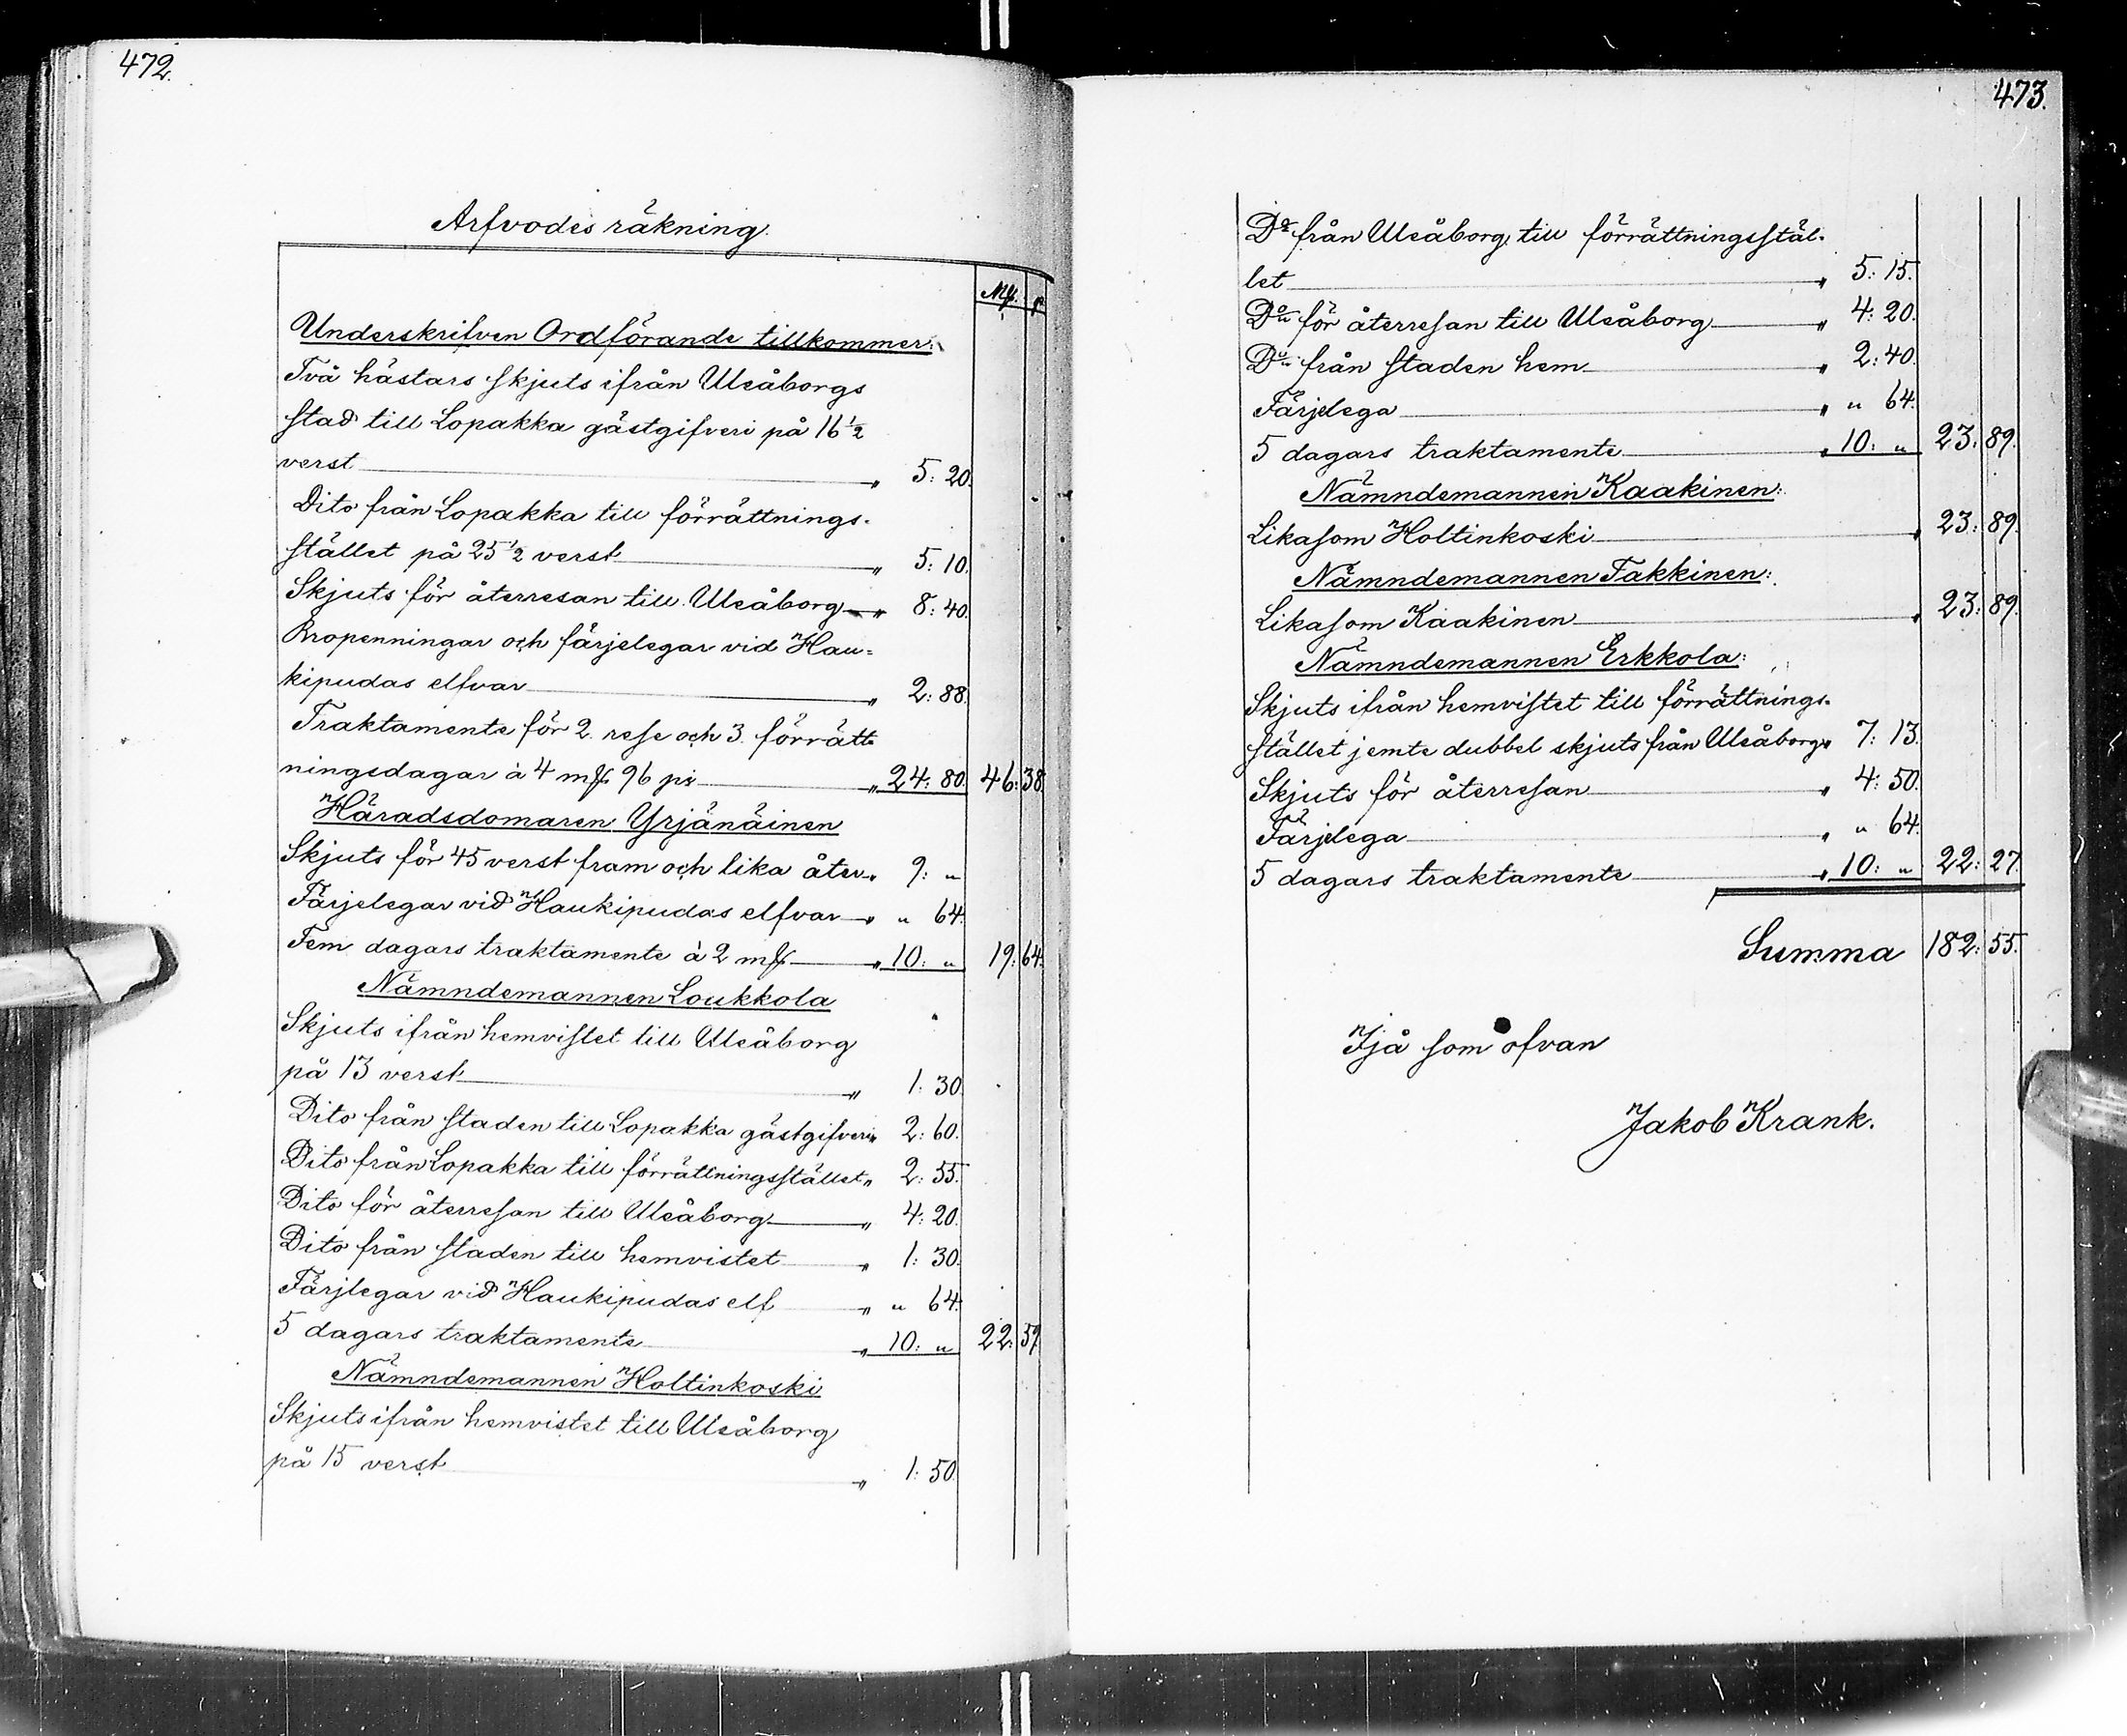 472.
Arfvodes räkning.
Mk. p
Underskrifven Ordförande tillkommer:
Två hästars skjuts ifrån Uleåborgs
stad till Lopakka gästgifveri på 16 1/2
verst " 5: 20.
Dito från Lopakka till förrättnings-
stället på 25 1/2 verst " 5: 10.
Skjuts för återresan till Uleåborg " 8: 40.
Bropenningar och färjelegar vid Hau=
kipudas elfvar " 2: 88.
Traktamente för 2. rese och 3. förrätt=
ningsdagar à 4 mk 96 pi " 24: 80. 46: 38.
Häradsdomaren Yrjänäinen
Skjuts för 45 verst fram och lika åter " 9: "
Färjelegar vid Haukipudas elfvar " " 64.
Fem dagars traktamente à 2 mk " 10: " 19: 64.
Nämndemannen Loukkola
Skjuts ifrån hemvistet till Uleåborg
på 13 verst " 1: 30.
Dito från staden till Lopakka gästgifveri " 2: 60.
Dito från Lopakka till förrättningsstället " 2: 55.
Dito för återresan till Uleåborg " 4: 20.
Dito från staden till hemvistet " 1: 30.
Färjlegar vid Haukipudas elf " " 64.
5 dagars traktamente " 10: " 22: 59.
Nämndemannen Holtinkoski
Skjuts ifrån hemvistet till Uleåborg
på 15 verst " 1: 50.
473.
Do från Uleåborg till förrättningsstäl-
let " 5: 15.
Do för återresan till Uleåborg " 4: 20.
Do från staden hem " 2: 40.
Färjelega " " 64.
5 dagars traktamente " 10: " 23: 89.
Nämndemannen Kaakinen:
Likasom Holtinkoski " 23: 89.
Nämndemannen Takkinen:
Likasom Kaakinen " 23: 89.
Nämndemannen Erkkola:
Skjuts ifrån hemvistet till förrättnings-
stället jemte dubbel skjuts från Uleåborg " 7: 13.
Skjuts för återresan " 4: 50.
Färjelega " " 64.
5 dagars traktamente " 10: " 22: 27.
Summa 182: 55.
Ijå som ofvan
Jakob Krank.